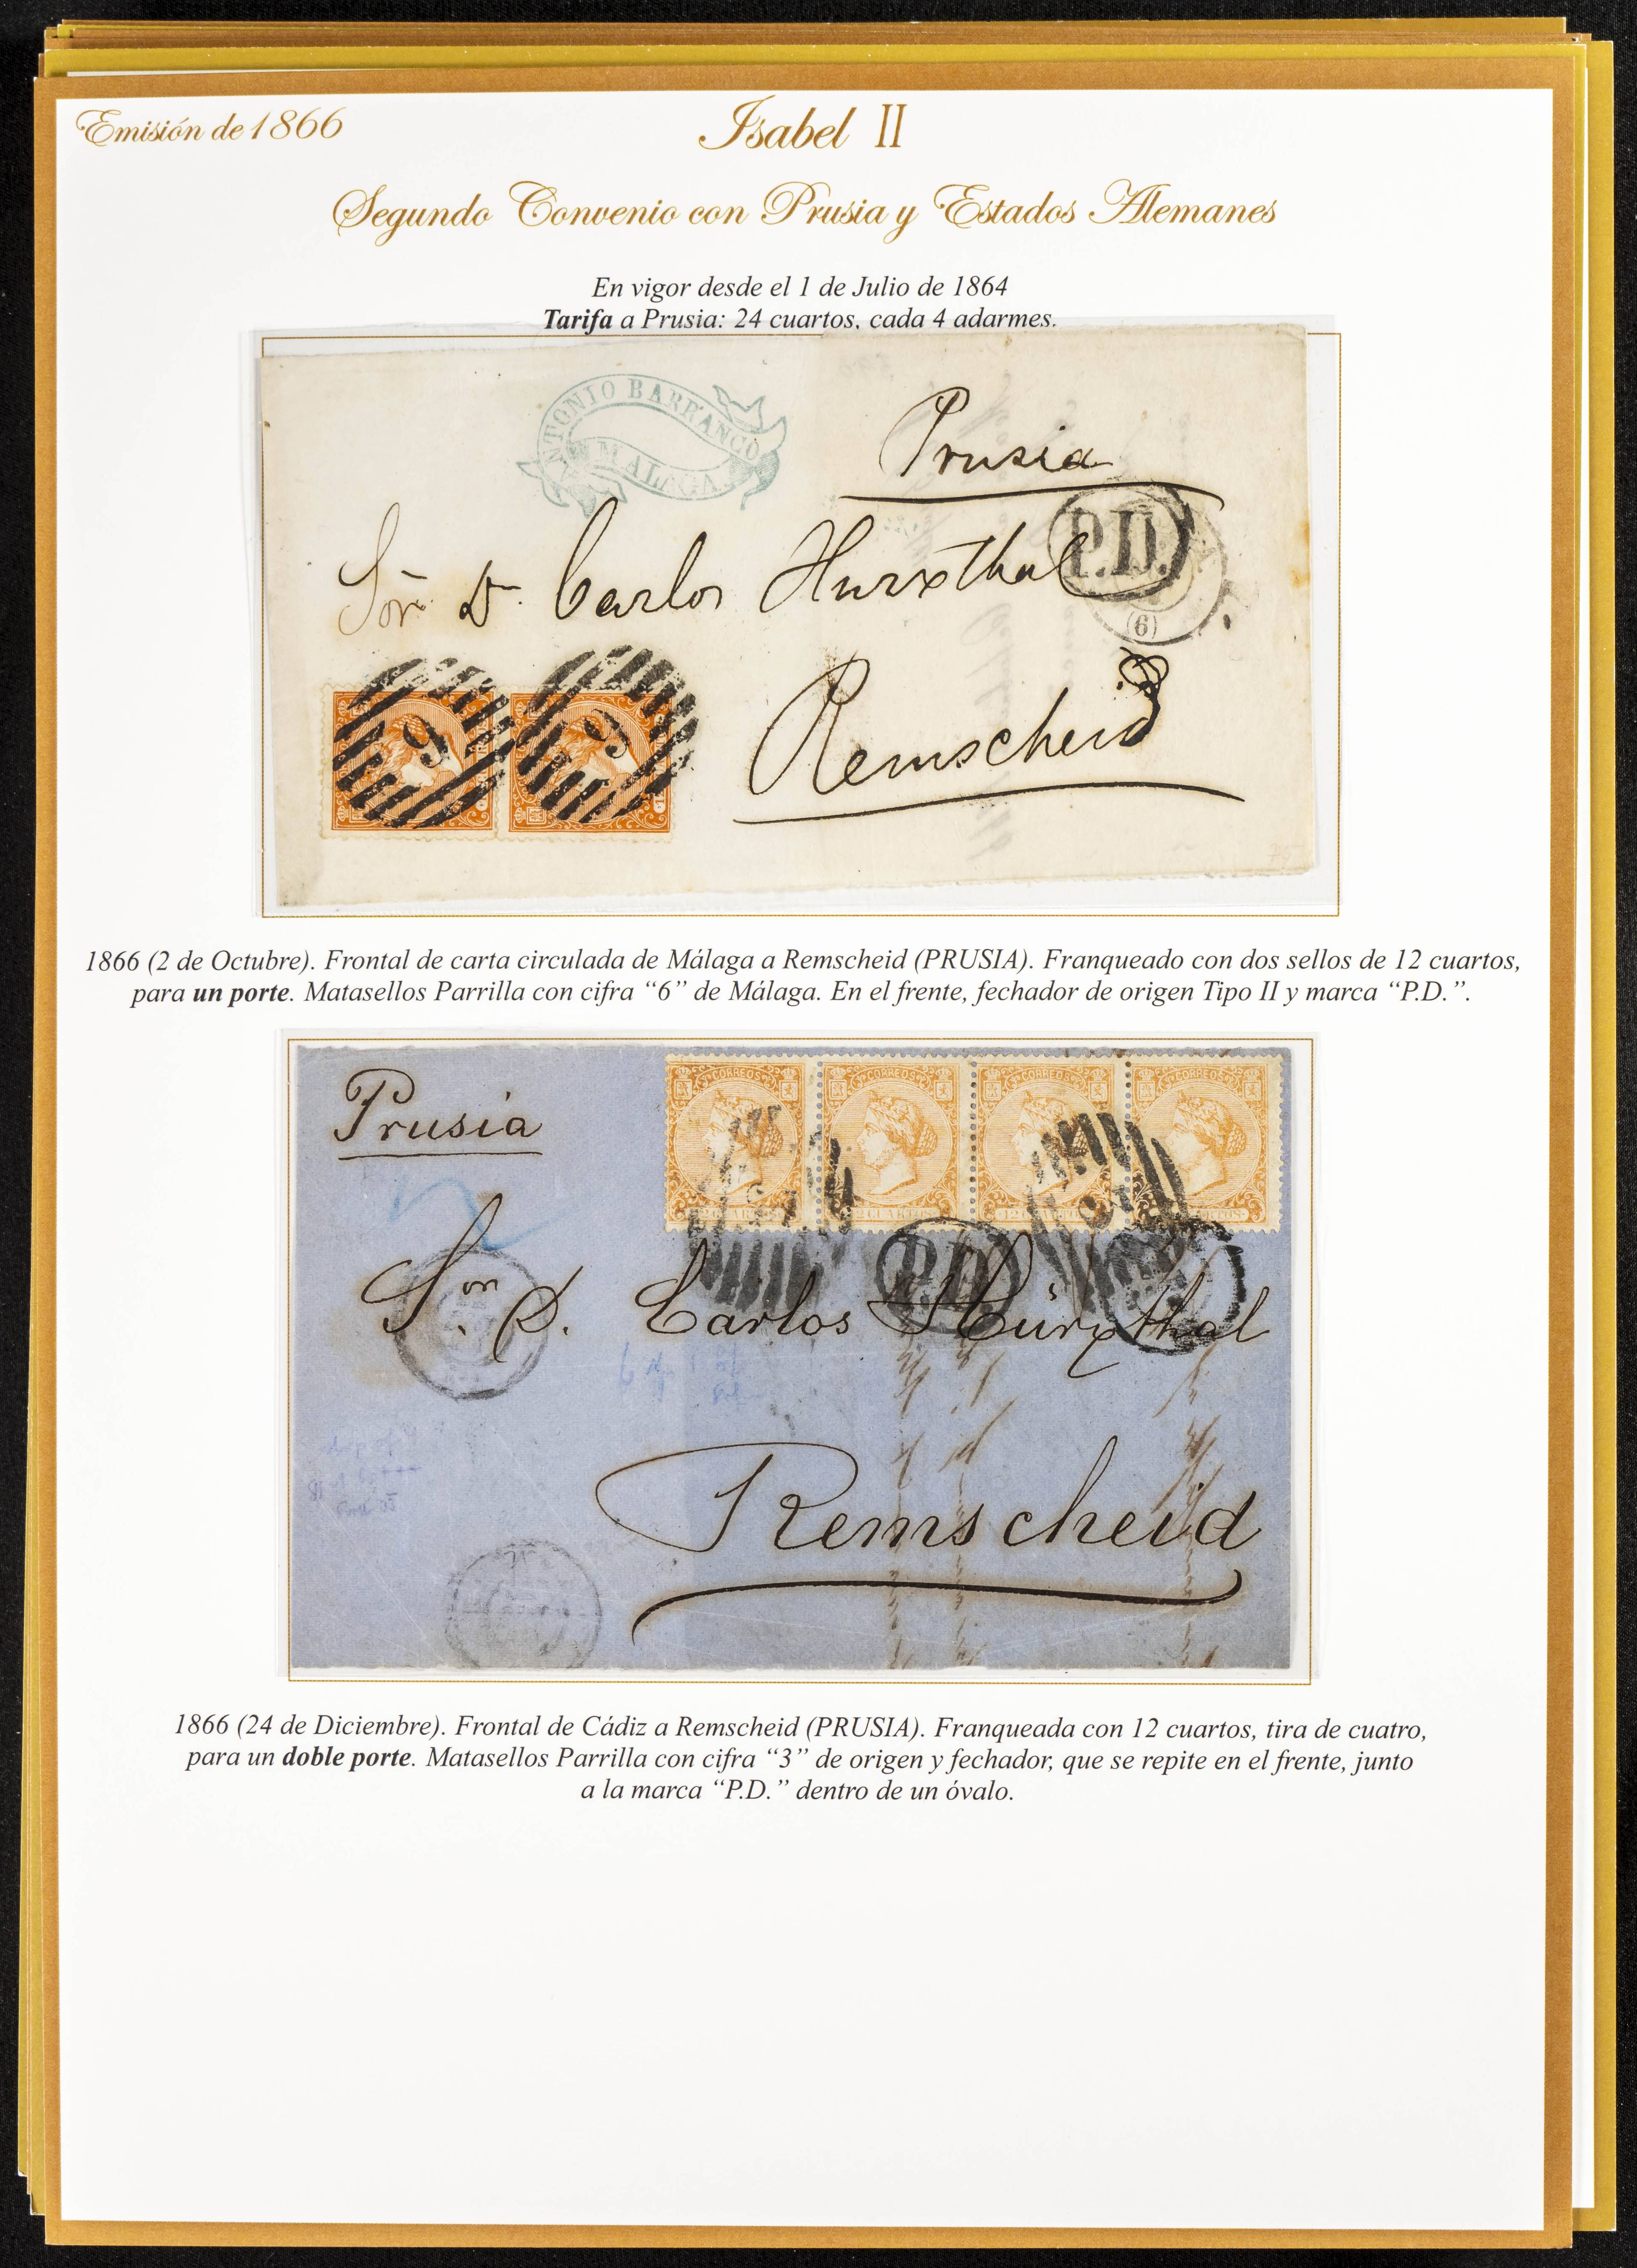 Emisión de 1866
Isabel II
Segundo Convenio con Prusia y Estados Alemanes
En vigor desde el 1 de Julio de 1864
Tarifa a Prusia: 24 cuartos, cada 4 adarmes.
ANTONIO BARRANCO
MALAGA
Prusia
P.D.
Sor. D. Carlos Hurxthal
(6)
Remscheid
1866 (2 de Octubre). Frontal de carta circulada de Málaga a Remscheid (PRUSIA). Franqueado con dos sellos de 12 cuartos,
para un porte. Matasellos Parrilla con cifra “6” de Málaga. En el frente, fechador de origen Tipo II y marca “P.D.”.
CORREOS CORREOS CORREOS CORREOS
Prusia
12 CUARTOS
P.D.
Sor. D. Carlos Hürxthal
Remscheid
1866 (24 de Diciembre). Frontal de Cádiz a Remscheid (PRUSIA). Franqueada con 12 cuartos, tira de cuatro,
para un doble porte. Matasellos Parrilla con cifra “3” de origen y fechador, que se repite en el frente, junto
a la marca “P.D.” dentro de un óvalo.